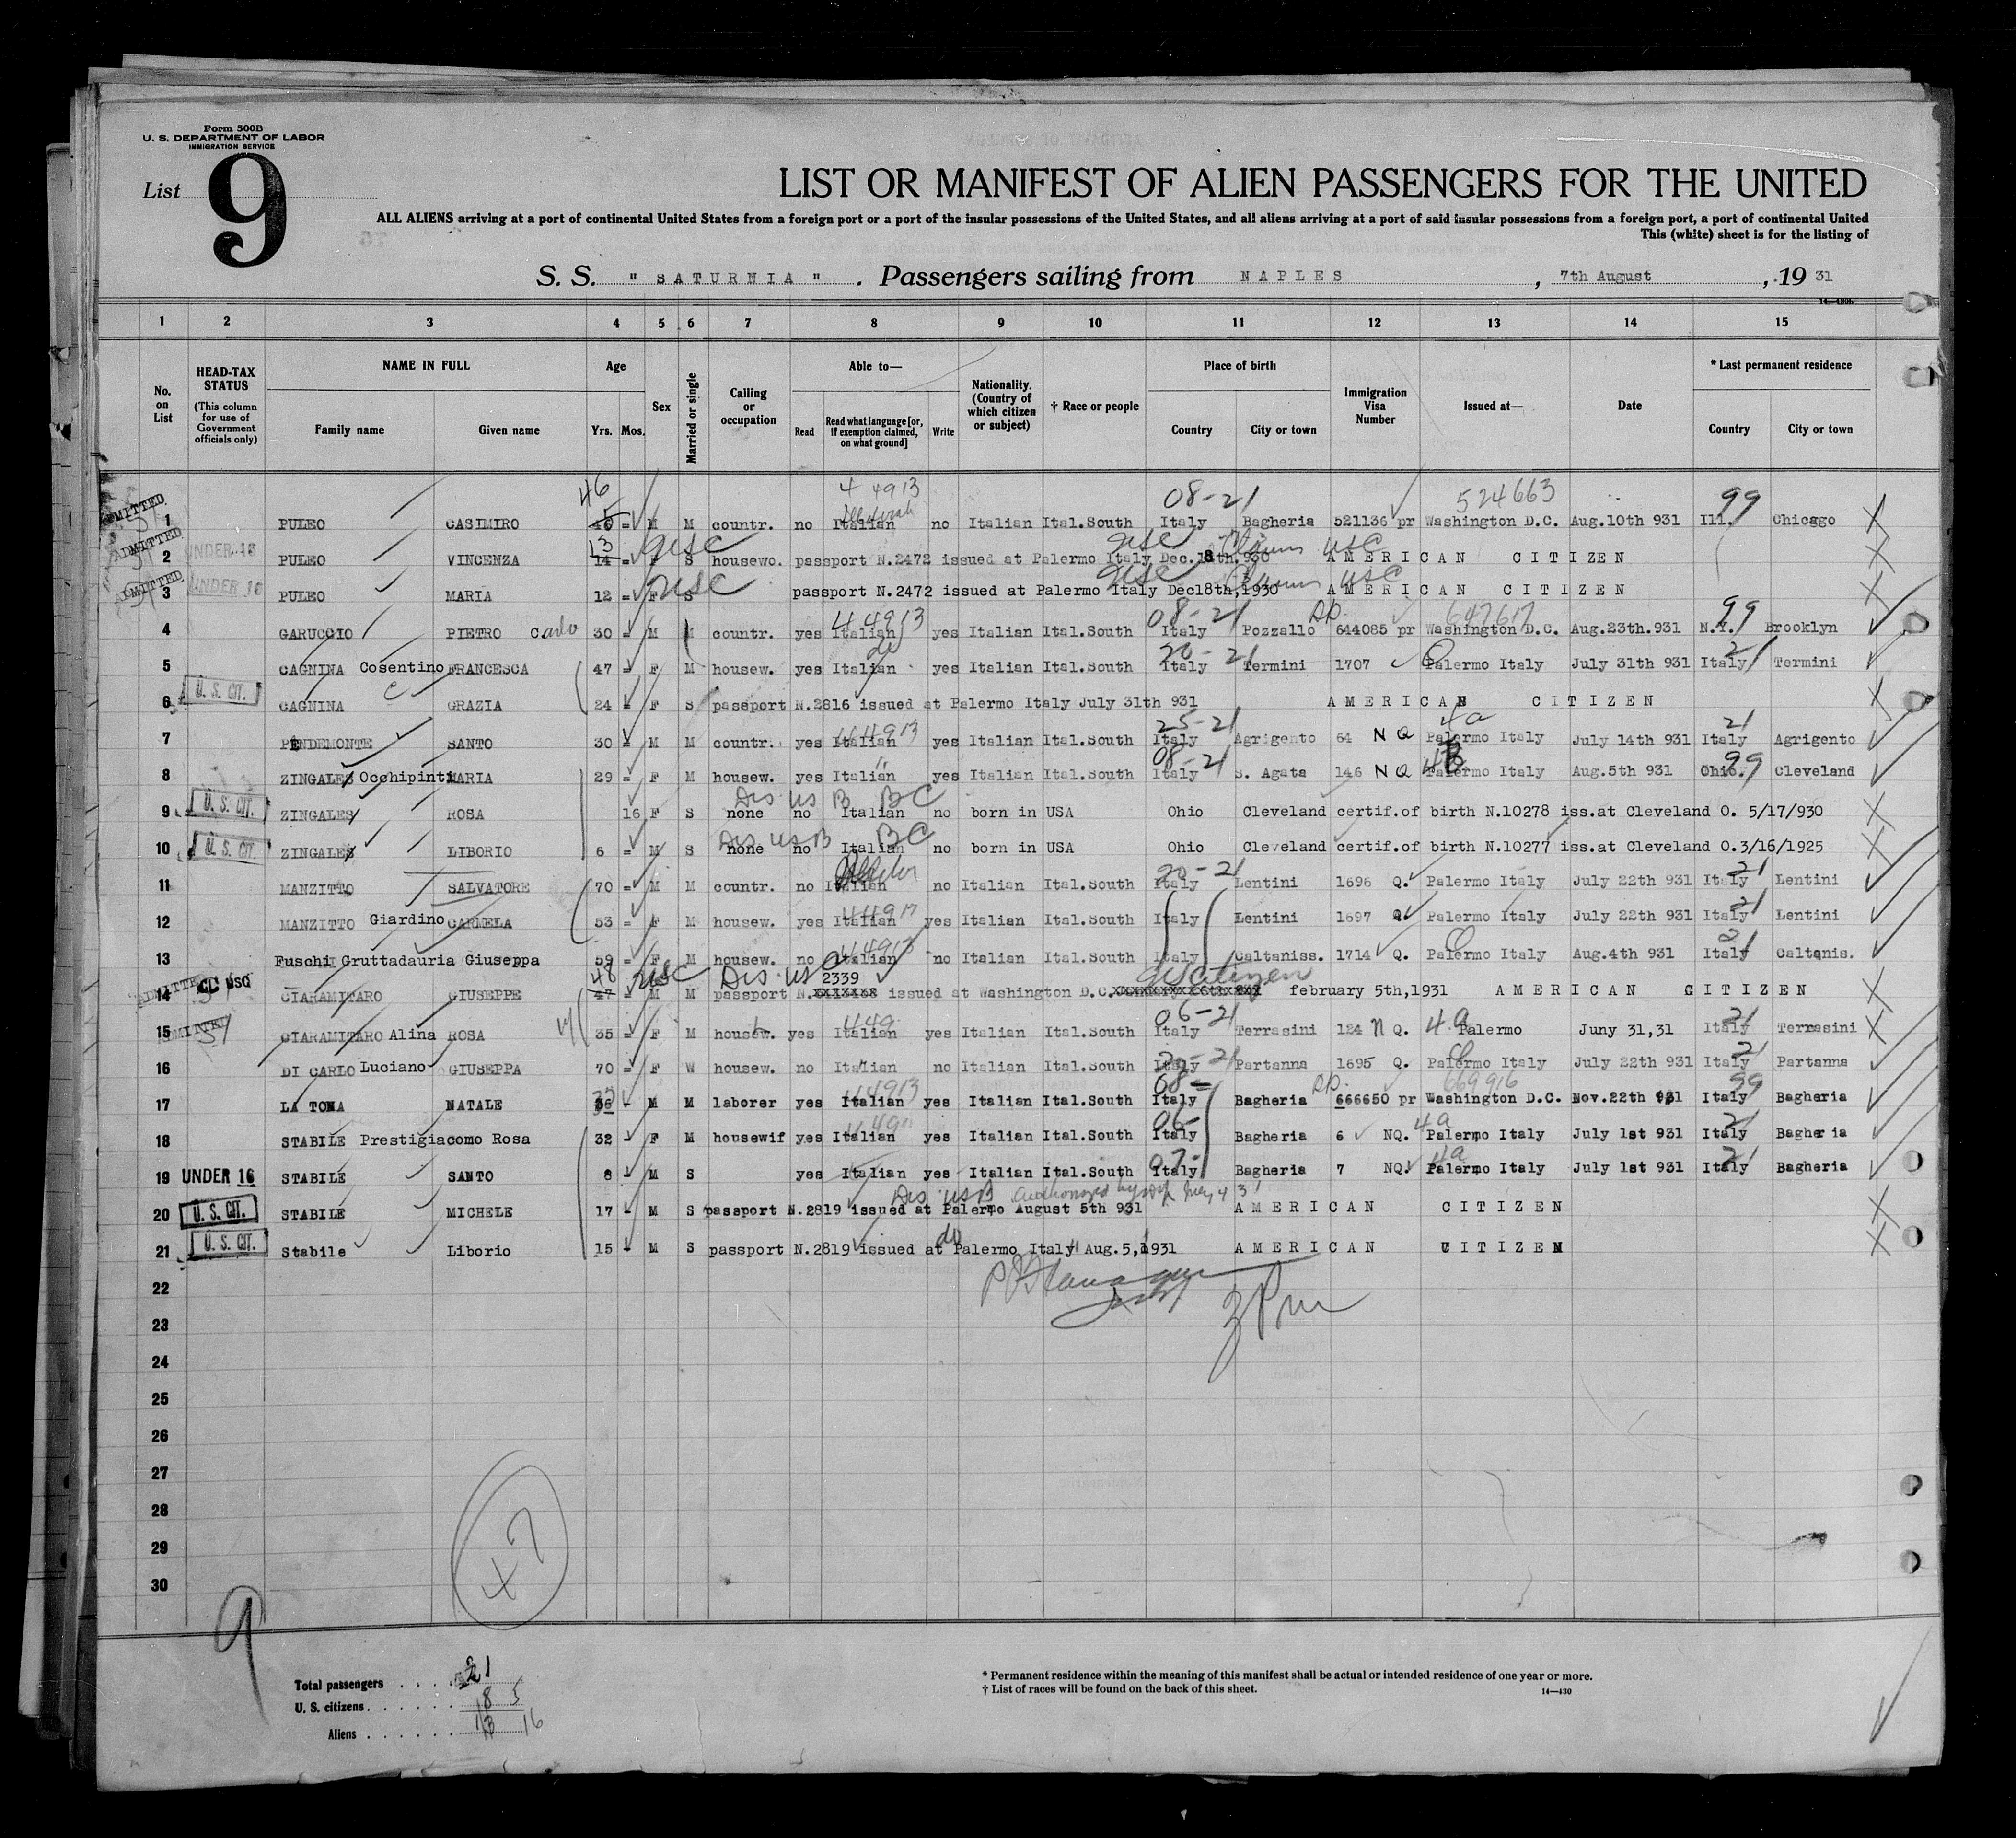 Form 500B
U. S. DEPARTMENT OF LABOR
IMMIGRATION SERVICE
List 9
LIST OR MANIFEST OF ALIEN PASSENGERS FOR THE UNITED
ALL ALIENS arriving at a port of continental United States from a foreign port or a port of the insular possessions of the United States, and all aliens arriving at a port of said insular possessions from a foreign port, a port of continental United
This (white) sheet is for the listing of
S. S. " SATURNIA " . Passengers sailing from NAPLES , 7th August , 19 31
1 2 3 4 5 6 7 8 9 10 11 12 13 14 15
No. on List
HEAD-TAX STATUS (This column for use of Government officials only)
NAME IN FULL Family name Given name
Age Yrs. Mos.
Sex
Married or single
Calling or occupation
Able to— Read Read what language [or, if exemption claimed, on what ground] Write
Nationality. (Country of which citizen or subject)
† Race or people
Place of birth Country City or town
Immigration Visa Number
Issued at—
Date
* Last permanent residence Country City or town
46 4 4913 08-21 524663 99
ADMITTED 1 PULEO CASIMIRO M M countr. no Italian no Italian Ital.South Italy Bagheria 521136 pr Washington D.C. Aug.10th 931 Ill. Chicago
13 USC USC USC
ADMITTED 2 UNDER 16 PULEO VINCENZA 14 = F S housewo. passport N.2472 issued at Palermo Italy Dec.18th.930 AMERICAN CITIZEN
USC USC USC
ADMITTED 3 UNDER 16 PULEO MARIA 12 = F S passport N.2472 issued at Palermo Italy Dec18th,1930 AMERICAN CITIZEN
44913 08-21 647617 99
4 GARUCCIO PIETRO Carlo 30 = M M countr. yes Italian yes Italian Ital.South Italy Pozzallo 644085 pr Washington D.C. Aug.23th.931 N.Y. Brooklyn
do 20-21 21
5 CAGNINA Cosentino FRANCESCA 47 = F M housew. yes Italian yes Italian Ital.South Italy Termini 1707 Palermo Italy July 31th 931 Italy Termini
6 U. S. CIT. CAGNINA GRAZIA 24 = F S passport N.2816 issued at Palermo Italy July 31th 931 AMERICAN CITIZEN
44913 25-21 4a 21
7 PENDEMONTE SANTO 30 = M M countr. yes Italian yes Italian Ital.South Italy Agrigento 64 NQ Palermo Italy July 14th 931 Italy Agrigento
08-21 99
8 ZINGALES Occhipinti MARIA 29 = F M housew. yes Italian yes Italian Ital.South Italy S. Agata 146 NQ Palermo Italy Aug.5th 931 Ohio. Cleveland
Dis US B BC
9 U. S. CIT. ZINGALES ROSA 16 F S none no Italian no born in USA Ohio Cleveland certif.of birth N.10278 iss.at Cleveland O. 5/17/930
Dis US B BC
10 U. S. CIT. ZINGALES LIBORIO 6 = M S none no Italian no born in USA Ohio Cleveland certif.of birth N.10277 iss.at Cleveland O.3/16/1925
20-21 21
11 MANZITTO SALVATORE 70 = M M countr. no Italian no Italian Ital.South Italy Lentini 1696 Q. Palermo Italy July 22th 931 Italy Lentini
21
12 MANZITTO Giardino CARMELA 53 = F M housew. yes Italian yes Italian Ital.South Italy Lentini 1697 Q Palermo Italy July 22th 931 Italy Lentini
44913 21
13 Fuschi Gruttadauria Giuseppa 59 = F M housew. no Italian no Italian Ital.South Italy Caltaniss. 1714 Q. Palermo Italy Aug.4th 931 Italy Caltanis.
48 USC Dis US 2339 US Citizen
ADMITTED 14 CIARAMITARO GIUSEPPE 47 = M M passport N. issued at Washington D.C. february 5th,1931 AMERICAN CITIZEN
449 06-21 4a 21
ADMITTED 15 CIARAMITARO Alina ROSA 35 = F M housew. yes Italian yes Italian Ital.South Italy Terrasini 124 NQ. Palermo Juny 31,31 Italy Terrasini
20-21 21
16 DI CARLO Luciano GIUSEPPA 70 = F W housew. no Italian no Italian Ital.South Italy Partanna 1695 Q. Palermo Italy July 22th 931 Italy Partanna
44913 08- 669916 99
17 LA TONA NATALE 36 - M M laborer yes Italian yes Italian Ital.South Italy Bagheria 666650 pr Washington D.C. Nov.22th 931 Italy Bagheria
06- 4a 21
18 STABILE Prestigiacomo Rosa 32 - F M housewif yes Italian yes Italian Ital.South Italy Bagheria 6 NQ. Palermo Italy July 1st 931 Italy Bagheria
07- 4a 21
19 UNDER 16 STABILE SANTO 8 - M S yes Italian yes Italian Ital.South Italy Bagheria 7 NQ. Palermo Italy July 1st 931 Italy Bagheria
Dis US B
20 U. S. CIT. STABILE MICHELE 17 - M S passport N.2819 issued at Palermo August 5th 931 AMERICAN CITIZEN
do
21 U. S. CIT. Stabile Liborio 15 - M S passport N.2819 issued at Palermo Italy Aug.5,1931 AMERICAN CITIZEN
22
23
24
25
26
27
28
29
30
47
9
Total passengers 21
U. S. citizens 8 5
Aliens 13 16
* Permanent residence within the meaning of this manifest shall be actual or intended residence of one year or more.
† List of races will be found on the back of this sheet. 14—430